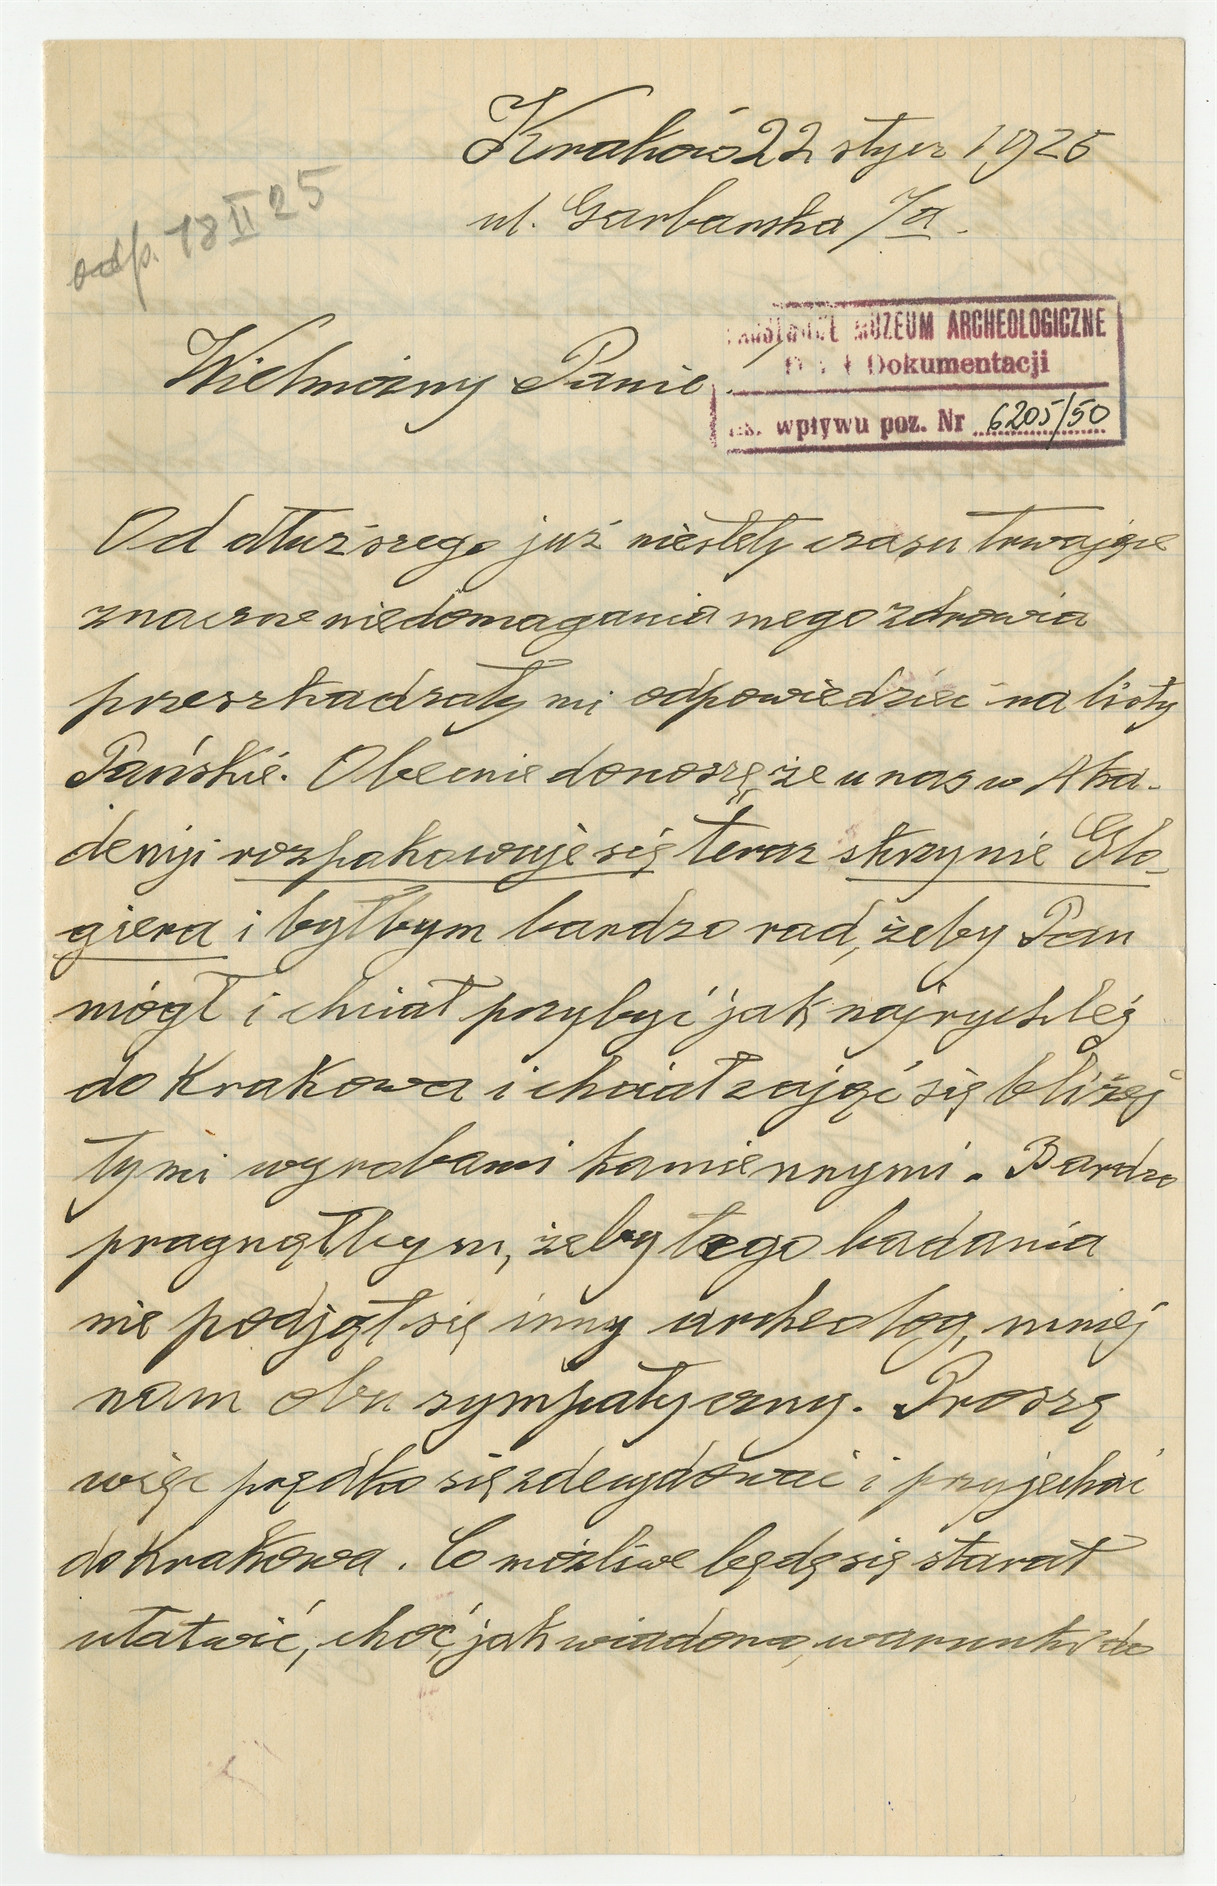 Kraków 22 stycz 1925
ul. Garbarska 7a.
odp. 18 II 25
Wielmożny Panie
PAŃSTWOWE MUZEUM ARCHEOLOGICZNE
Dział Dokumentacji
Ks. wpływu poz. Nr 6205/50
Od dłuższego już niestety czasu trwające
znaczne niedomagania mego zdrowia
przeszkadzały mi odpowiedzieć na listy
Pańskie. Obecnie donoszę, że u nas w Aka-
demji rozpakowuje się teraz skrzynie Glo-
giera i byłbym bardzo rad, żeby Pan
mógł i chciał przybyć jak najrychlej
do Krakowa i chciał zająć się bliżej
tymi wyrobami kamiennymi. Bardzo
pragnąłbym, żeby tego badania
nie podjął się inny archeolog, mniej
nam obu sympatyczny. Proszę
więc prędko się zdecydować i przyjechać
do Krakowa. Co możliwe będę się starał
ułatwić, choć, jak wiadomo, warunki do